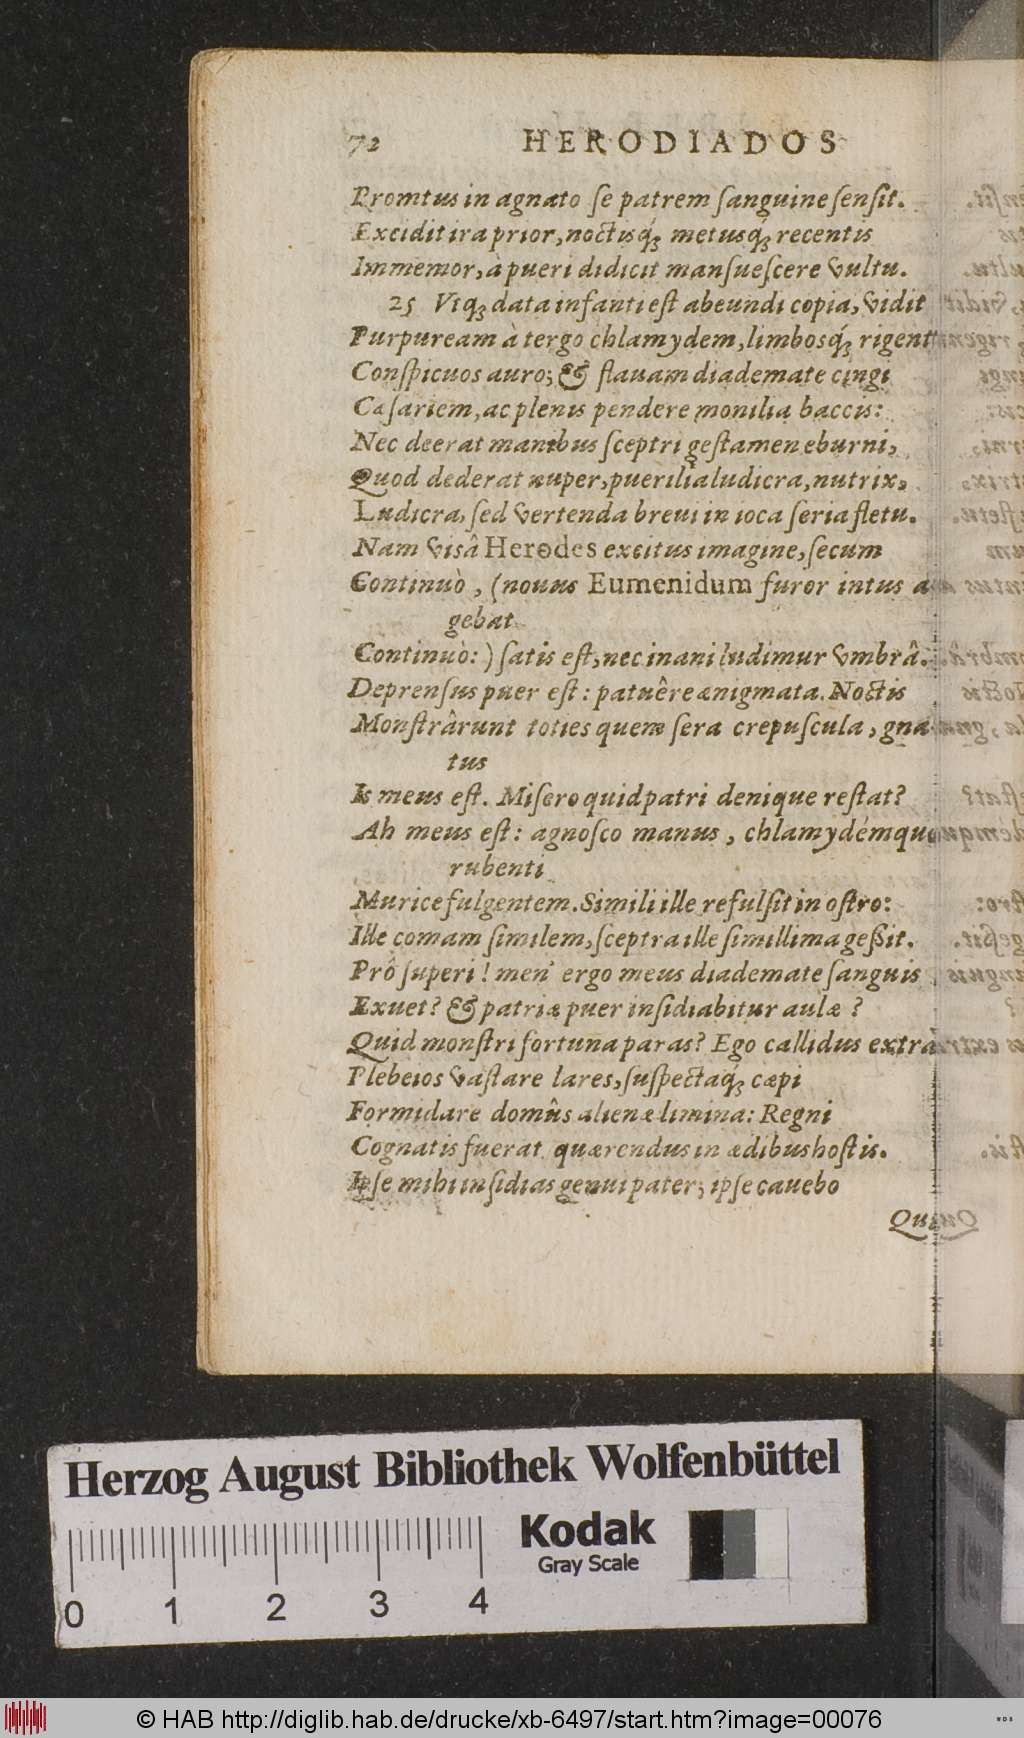 72 HERODIADOS
Promtus in agnato ſe patrem ſanguine ſenſit.
Excidit ira prior, noctisq́; metusq́; recentis
Immemor, à pueri didicit manſueſcere vultu.
25 Vtq; data infanti eſt abeundi copia, vidit
Purpuream à tergo chlamydem, limbosq́; rigent
Conſpicuos auro; & flauam diademate cingi
Cæſariem, ac plenis pendere monilia baccis:
Nec deerat manibus ſceptri geſtamen eburni,
Quod dederat nuper, puerilia ludicra, nutrix,
Ludicra, ſed vertenda breui in ioca ſeria fletu.
Nam viſâ Herodes excitus imagine, ſecum
Continuò, (nouus Eumenidum furor intus a
gebat
Continuò:) ſatis eſt, nec inani ludimur vmbrâ.
Deprenſus puer eſt: patuêre ænigmata. Noctis
Monſtrârunt toties quem ſera crepuſcula, gna
tus
Is meus eſt. Miſero quid patri denique reſtat?
Ah meus eſt: agnoſco manus, chlamydémque
rubenti
Murice fulgentem. Simili ille refulſit in oſtro:
Ille comam ſimilem, ſceptra ille ſimillima geßit.
Prô ſuperi! men' ergo meus diademate ſanguis
Exuet? & patriæ puer inſidiabitur aulæ?
Quid monſtri fortuna paras? Ego callidus extrà
Plebeios vaſtare lares, ſuſpectaq́; cæpi
Formidare domûs alienæ limina: Regni
Cognatis fuerat quærendus in ædibus hoſtis.
Ipſe mihi inſidias genui pater; ipſe cauebo
Qui
Herzog August Bibliothek Wolfenbüttel
Kodak
Gray Scale
0 1 2 3 4
© HAB http://diglib.hab.de/drucke/xb-6497/start.htm?image=00076